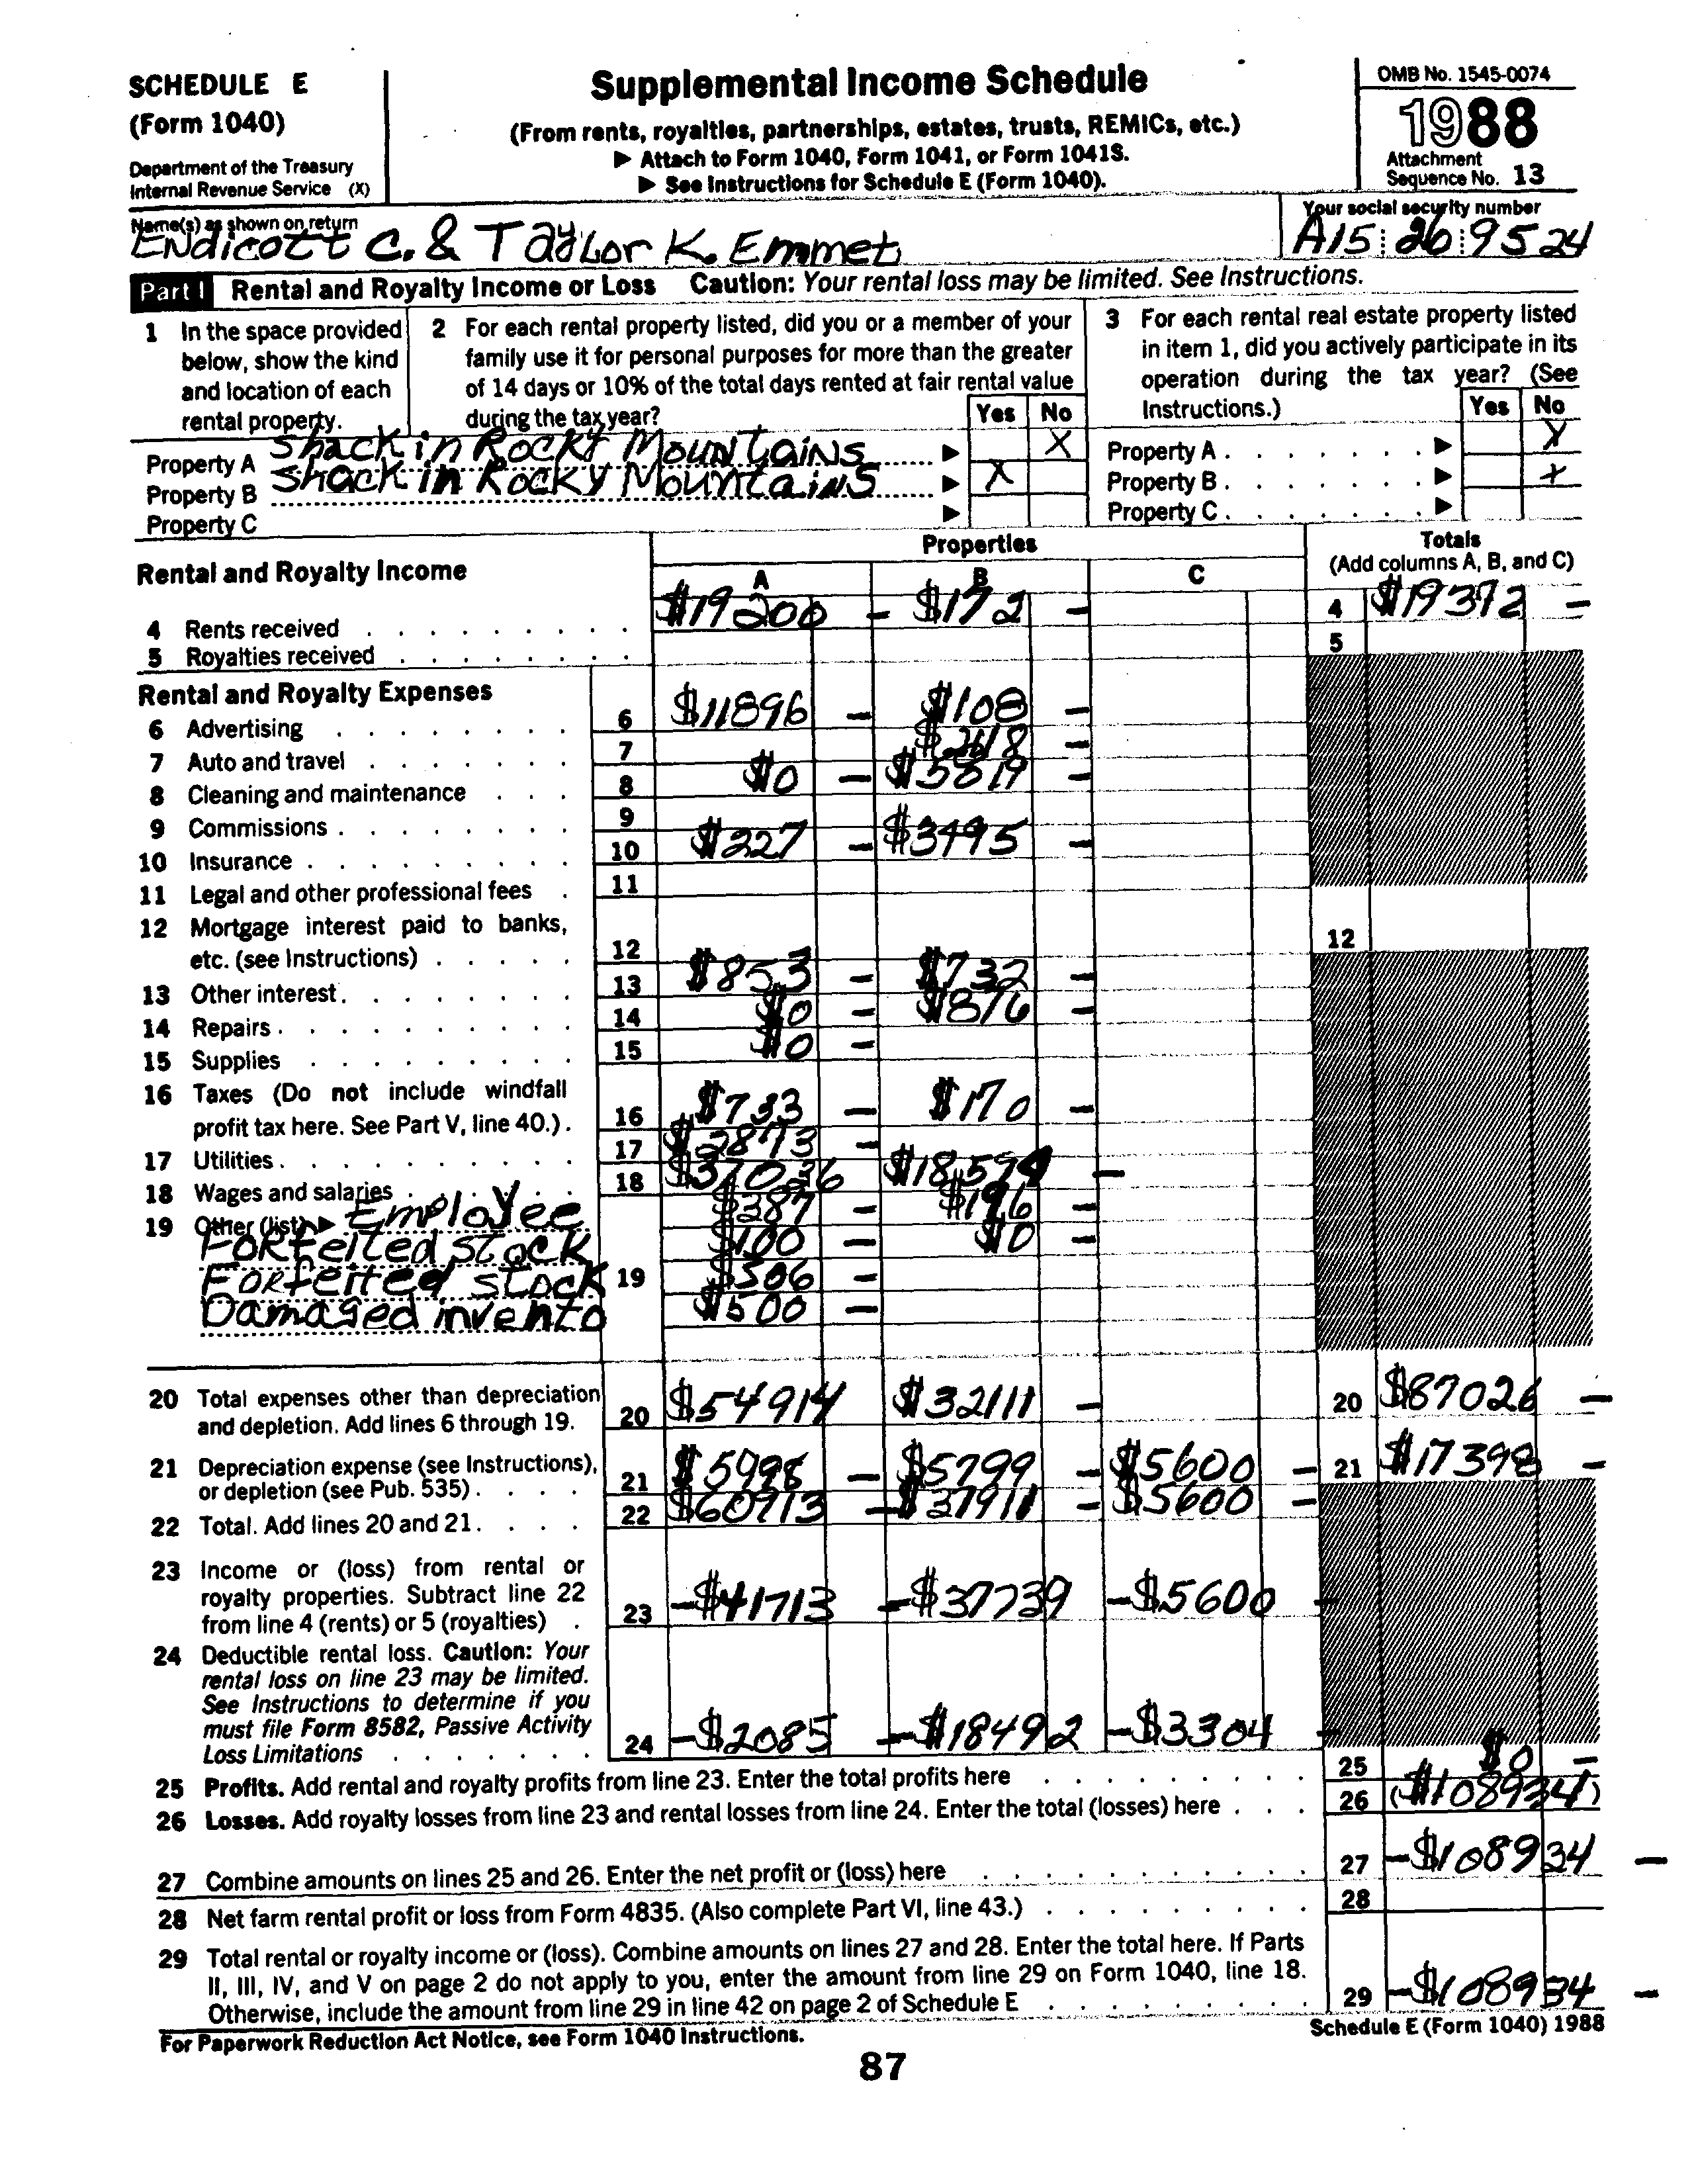 SCHEDULE E
(Form 1040)
Department of the Treasury
Internal Revenue Service (X)
Supplemental Income Schedule
(From rents, royalties, partnerships, estates, trusts, REMICs, etc.)
▶ Attach to Form 1040, Form 1041, or Form 1041S.
▶ See Instructions for Schedule E (Form 1040).
OMB No. 1545-0074
1988
Attachment
Sequence No. 13
Name(s) as shown on return
Endicott C. & Taylor K. Emmet
Your social security number
A15 26 9524
Part I Rental and Royalty Income or Loss Caution: Your rental loss may be limited. See Instructions.
1 In the space provided
below, show the kind
and location of each
rental property.
2 For each rental property listed, did you or a member of your
family use it for personal purposes for more than the greater
of 14 days or 10% of the total days rented at fair rental value
during the tax year?
Yes No
3 For each rental real estate property listed
in item 1, did you actively participate in its
operation during the tax year? (See
Instructions.)
Yes No
Property A Shack in Rocky Mountains ▶ X
Property A ▶ X
Property B Shack in Rocky Mountains ▶ X
Property B ▶ X
Property C ▶
Property C ▶
Rental and Royalty Income
Properties
A B C
Totals
(Add columns A, B, and C)
4 Rents received $19200 - $172 - 4 $19372 -
5 Royalties received 5
Rental and Royalty Expenses
6 Advertising 6 $11896 - $108 -
7 Auto and travel 7 $2618 -
8 Cleaning and maintenance 8 $0 - $5819 -
9 Commissions 9
10 Insurance 10 $227 - $3495 -
11 Legal and other professional fees 11
12 Mortgage interest paid to banks,
etc. (see Instructions) 12 12
13 Other interest 13 $853 - $732 -
14 Repairs 14 $0 - $876 -
15 Supplies 15 $0 -
16 Taxes (Do not include windfall
profit tax here. See Part V, line 40.) 16 $733 - $170 -
17 Utilities 17 $2873 -
18 Wages and salaries 18 $37036 $18,574 -
19 Other (list) ▶ Employee $387 - $196 -
Forfeited stock $100 - $0 -
Forfeited stock 19 $306 -
Damaged invento $500 -
20 Total expenses other than depreciation
and depletion. Add lines 6 through 19. 20 $54914 $32111 - 20 $87026 -
21 Depreciation expense (see Instructions),
or depletion (see Pub. 535) 21 $5998 - $5799 - $5600 - 21 $17398 -
22 Total. Add lines 20 and 21 22 $60913 - $37911 - $5600 -
23 Income or (loss) from rental or
royalty properties. Subtract line 22
from line 4 (rents) or 5 (royalties) 23 -$41713 -$37739 -$5600 -
24 Deductible rental loss. Caution: Your
rental loss on line 23 may be limited.
See Instructions to determine if you
must file Form 8582, Passive Activity
Loss Limitations 24 -$2085 -$18492 -$3304 -
25 Profits. Add rental and royalty profits from line 23. Enter the total profits here 25 $0 -
26 Losses. Add royalty losses from line 23 and rental losses from line 24. Enter the total (losses) here 26 ($108934)
27 Combine amounts on lines 25 and 26. Enter the net profit or (loss) here 27 -$108934 -
28 Net farm rental profit or loss from Form 4835. (Also complete Part VI, line 43.) 28
29 Total rental or royalty income or (loss). Combine amounts on lines 27 and 28. Enter the total here. If Parts
II, III, IV, and V on page 2 do not apply to you, enter the amount from line 29 on Form 1040, line 18.
Otherwise, include the amount from line 29 in line 42 on page 2 of Schedule E 29 -$108934 -
For Paperwork Reduction Act Notice, see Form 1040 Instructions.
Schedule E (Form 1040) 1988
87